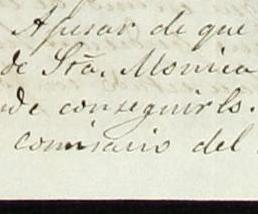 Apesar de que
de Sta. Monica
de conseguirlo.
comisario del